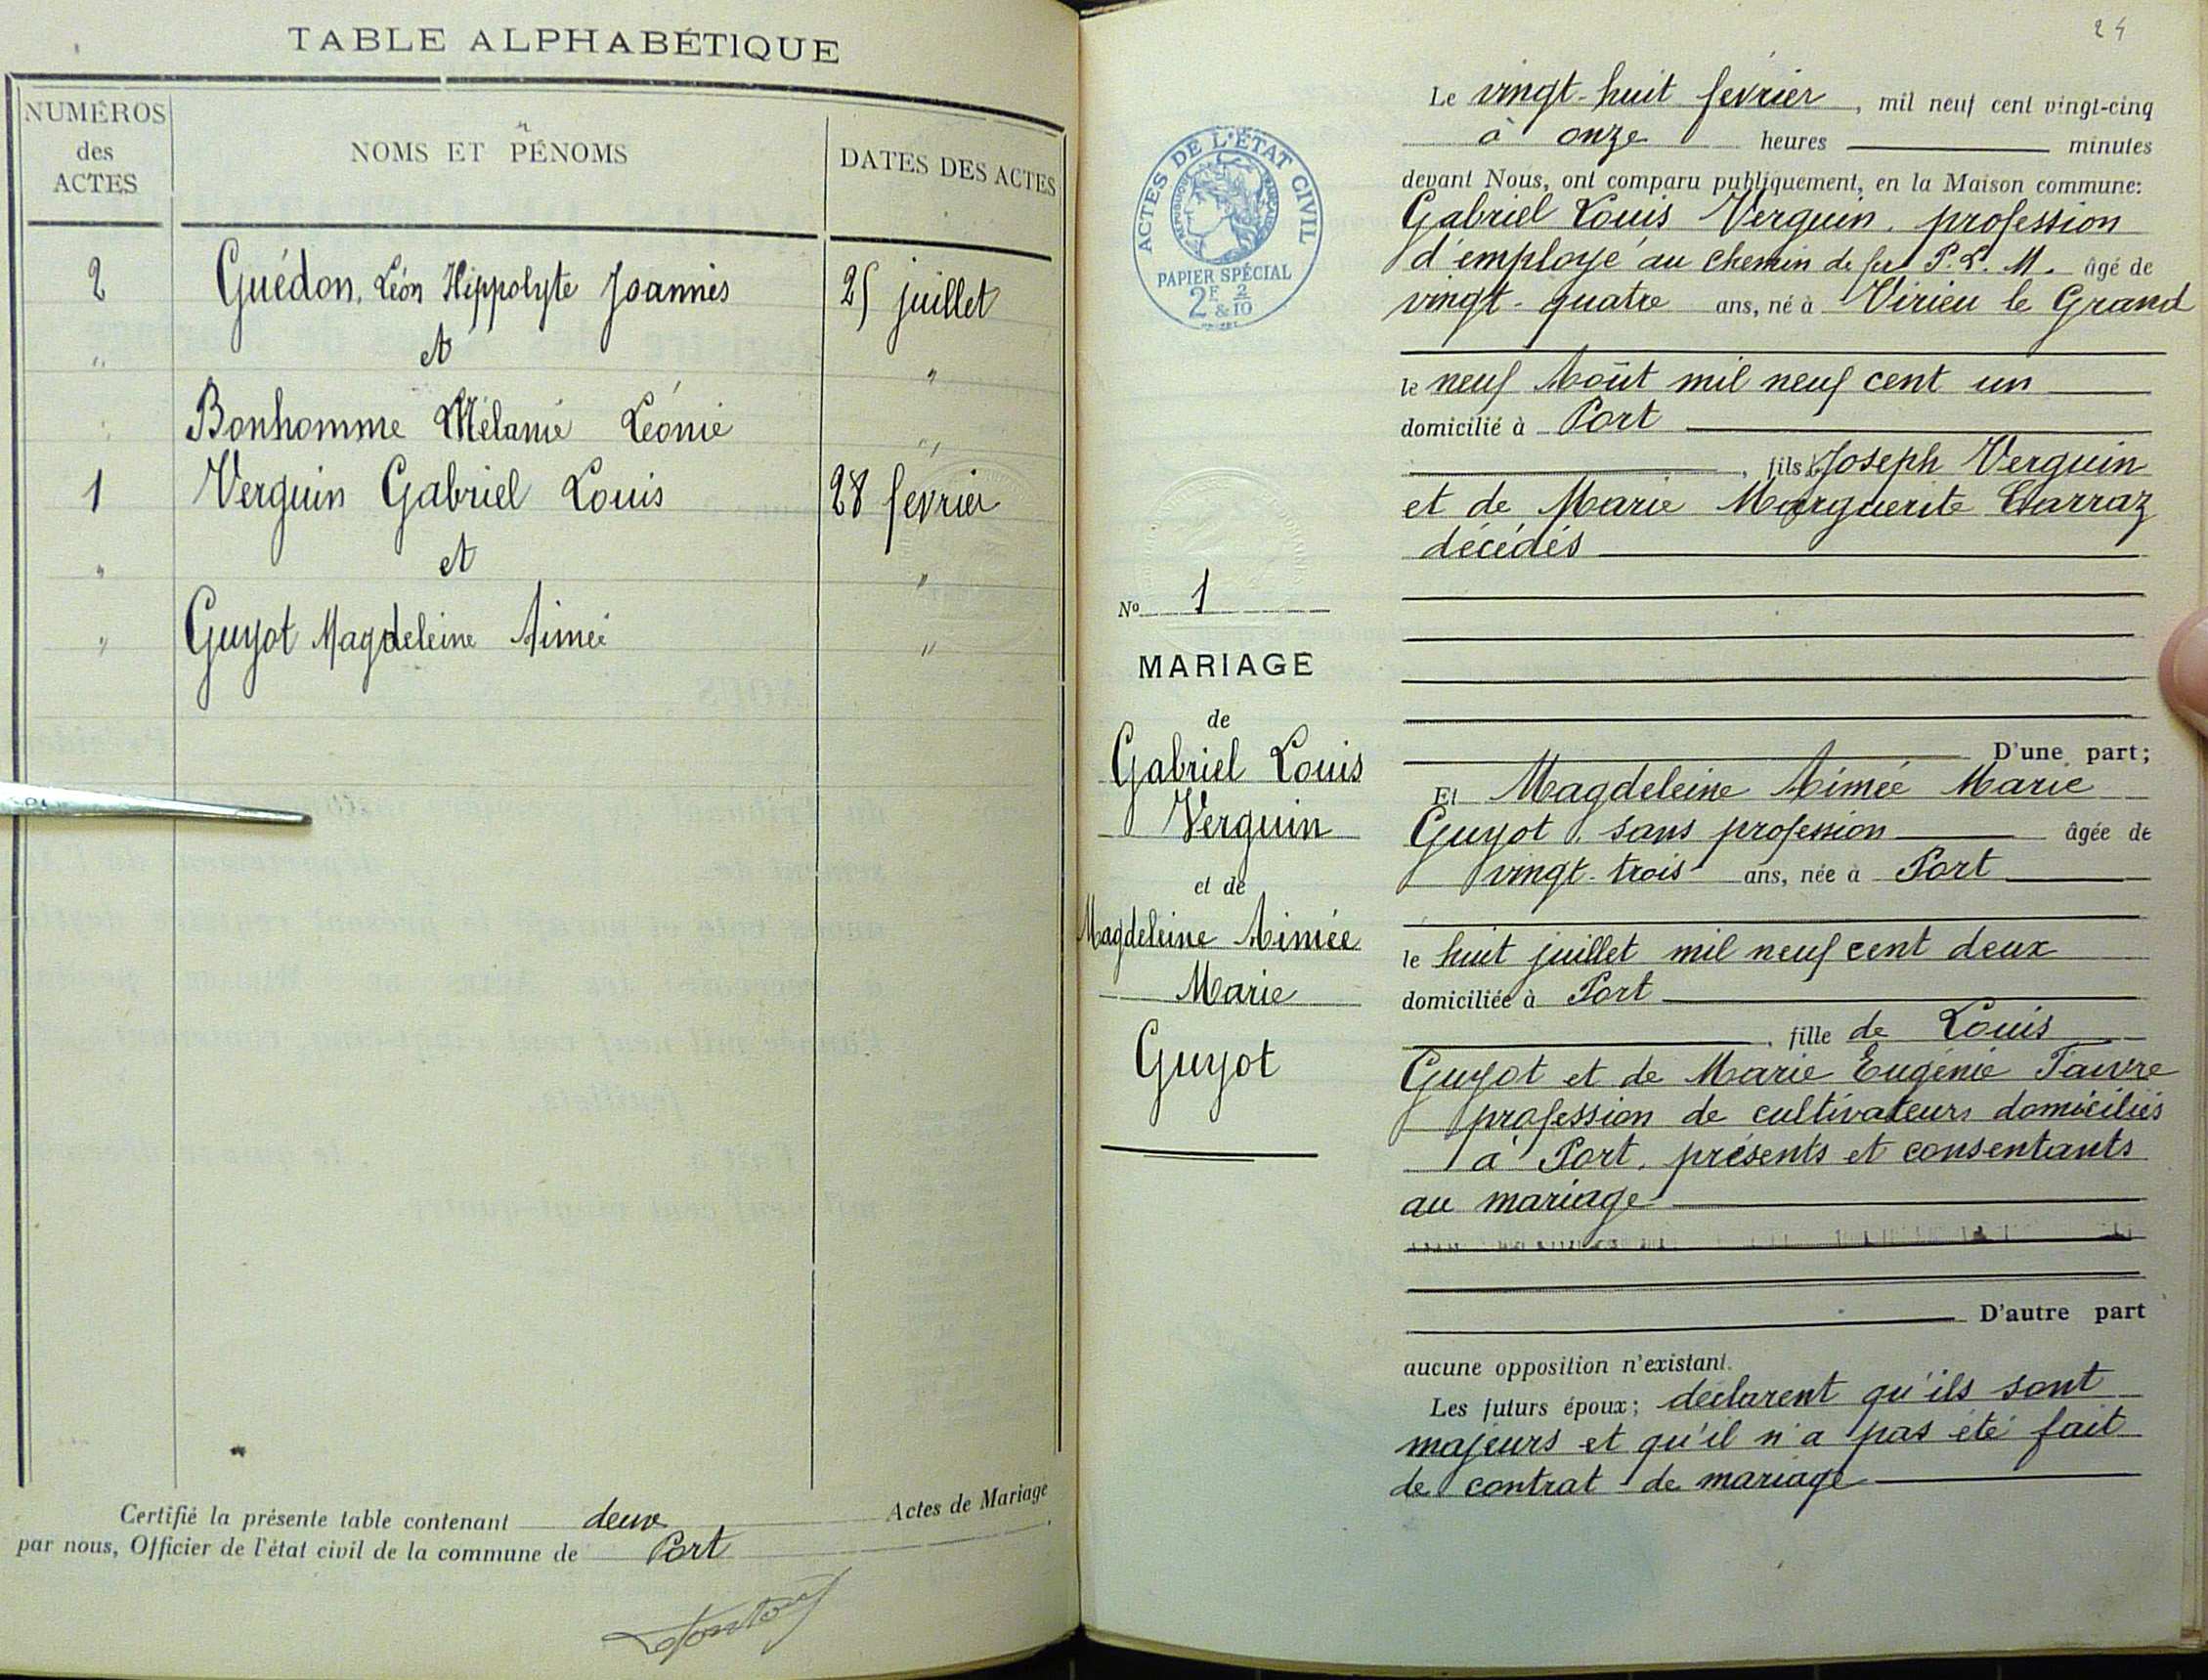 TABLE ALPHABÉTIQUE
NUMÉROS
des
ACTES
NOMS ET PÉNOMS
r
DATES DES ACTES
2 Guédon, Léon Hippolyte Joannès 25 juillet
" et "
Bonhomme Mélanie Léonie "
1 Verguin Gabriel Louis 28 février
" et "
" Guyot Magdeleine Aimée "
Certifié la présente table contenant deux Actes de Mariage
par nous, Officier de l'état civil de la commune de Port
24
ACTES DE L'ÉTAT CIVIL
RÉPUBLIQUE FRANÇAISE
PAPIER SPÉCIAL
2F & 2/10
Nº 1
MARIAGE
de
Gabriel Louis
Verguin
et de
Magdeleine Aimée
Marie
Guyot
Le vingt-huit février, mil neuf cent vingt-cinq
à onze heures minutes
devant Nous, ont comparu publiquement, en la Maison commune:
Gabriel Louis Verguin, profession
d'employé au chemin de fer P. L. M. âgé de
vingt-quatre ans, né à Virieu le Grand
le neuf Août mil neuf cent un
domicilié à Port
, fils Joseph Verguin
et de Marie Marguerite
décédés
D'une part;
Et Magdeleine Aimée Marie
Guyot, sans profession âgée de
vingt-trois ans, née à Port
le huit juillet mil neuf cent deux
domiciliée à Port
, fille de Louis
Guyot et de Marie Eugénie Faivre
profession de cultivateurs domiciliés
à Port, présents et consentants
au mariage
D'autre part
aucune opposition n'existant.
Les futurs époux; déclarent qu'ils sont
majeurs et qu'il n'a pas été fait
de contrat de mariage